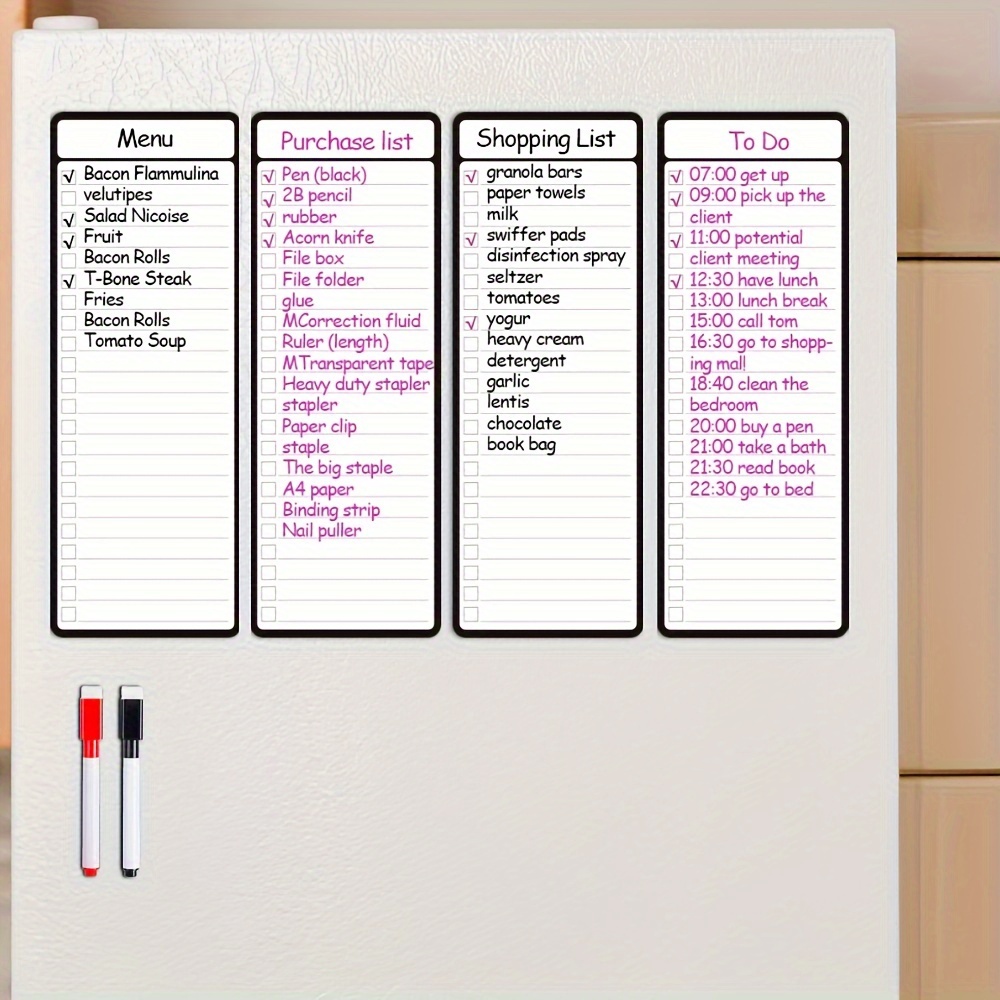 Menu
Bacon Flammulina
velutipes
Salad Nicoise
Fruit
Bacon Rolls
T-Bone Steak
Fries
Bacon Rolls
Tomato Soup
Purchase list
Pen (black)
2B pencil
rubber
Acorn knife
File box
File folder
glue
MCorrection fluid
Ruler (length)
MTransparent tape
Heavy duty stapler
stapler
Paper clip
staple
The big staple
A4 paper
Binding strip
Nail puller
Shopping List
granola bars
paper towels
milk
swiffer pads
disinfection spray
seltzer
tomatoes
yogur
heavy cream
detergent
garlic
lentis
chocolate
book bag
To Do
07:00 get up
09:00 pick up the
client
11:00 potential
client meeting
12:30 have lunch
13:00 lunch break
15:00 call tom
16:30 go to shopp-
ing mal!
18:40 clean the
bedroom
20:00 buy a pen
21:00 take a bath
21:30 read book
22:30 go to bed